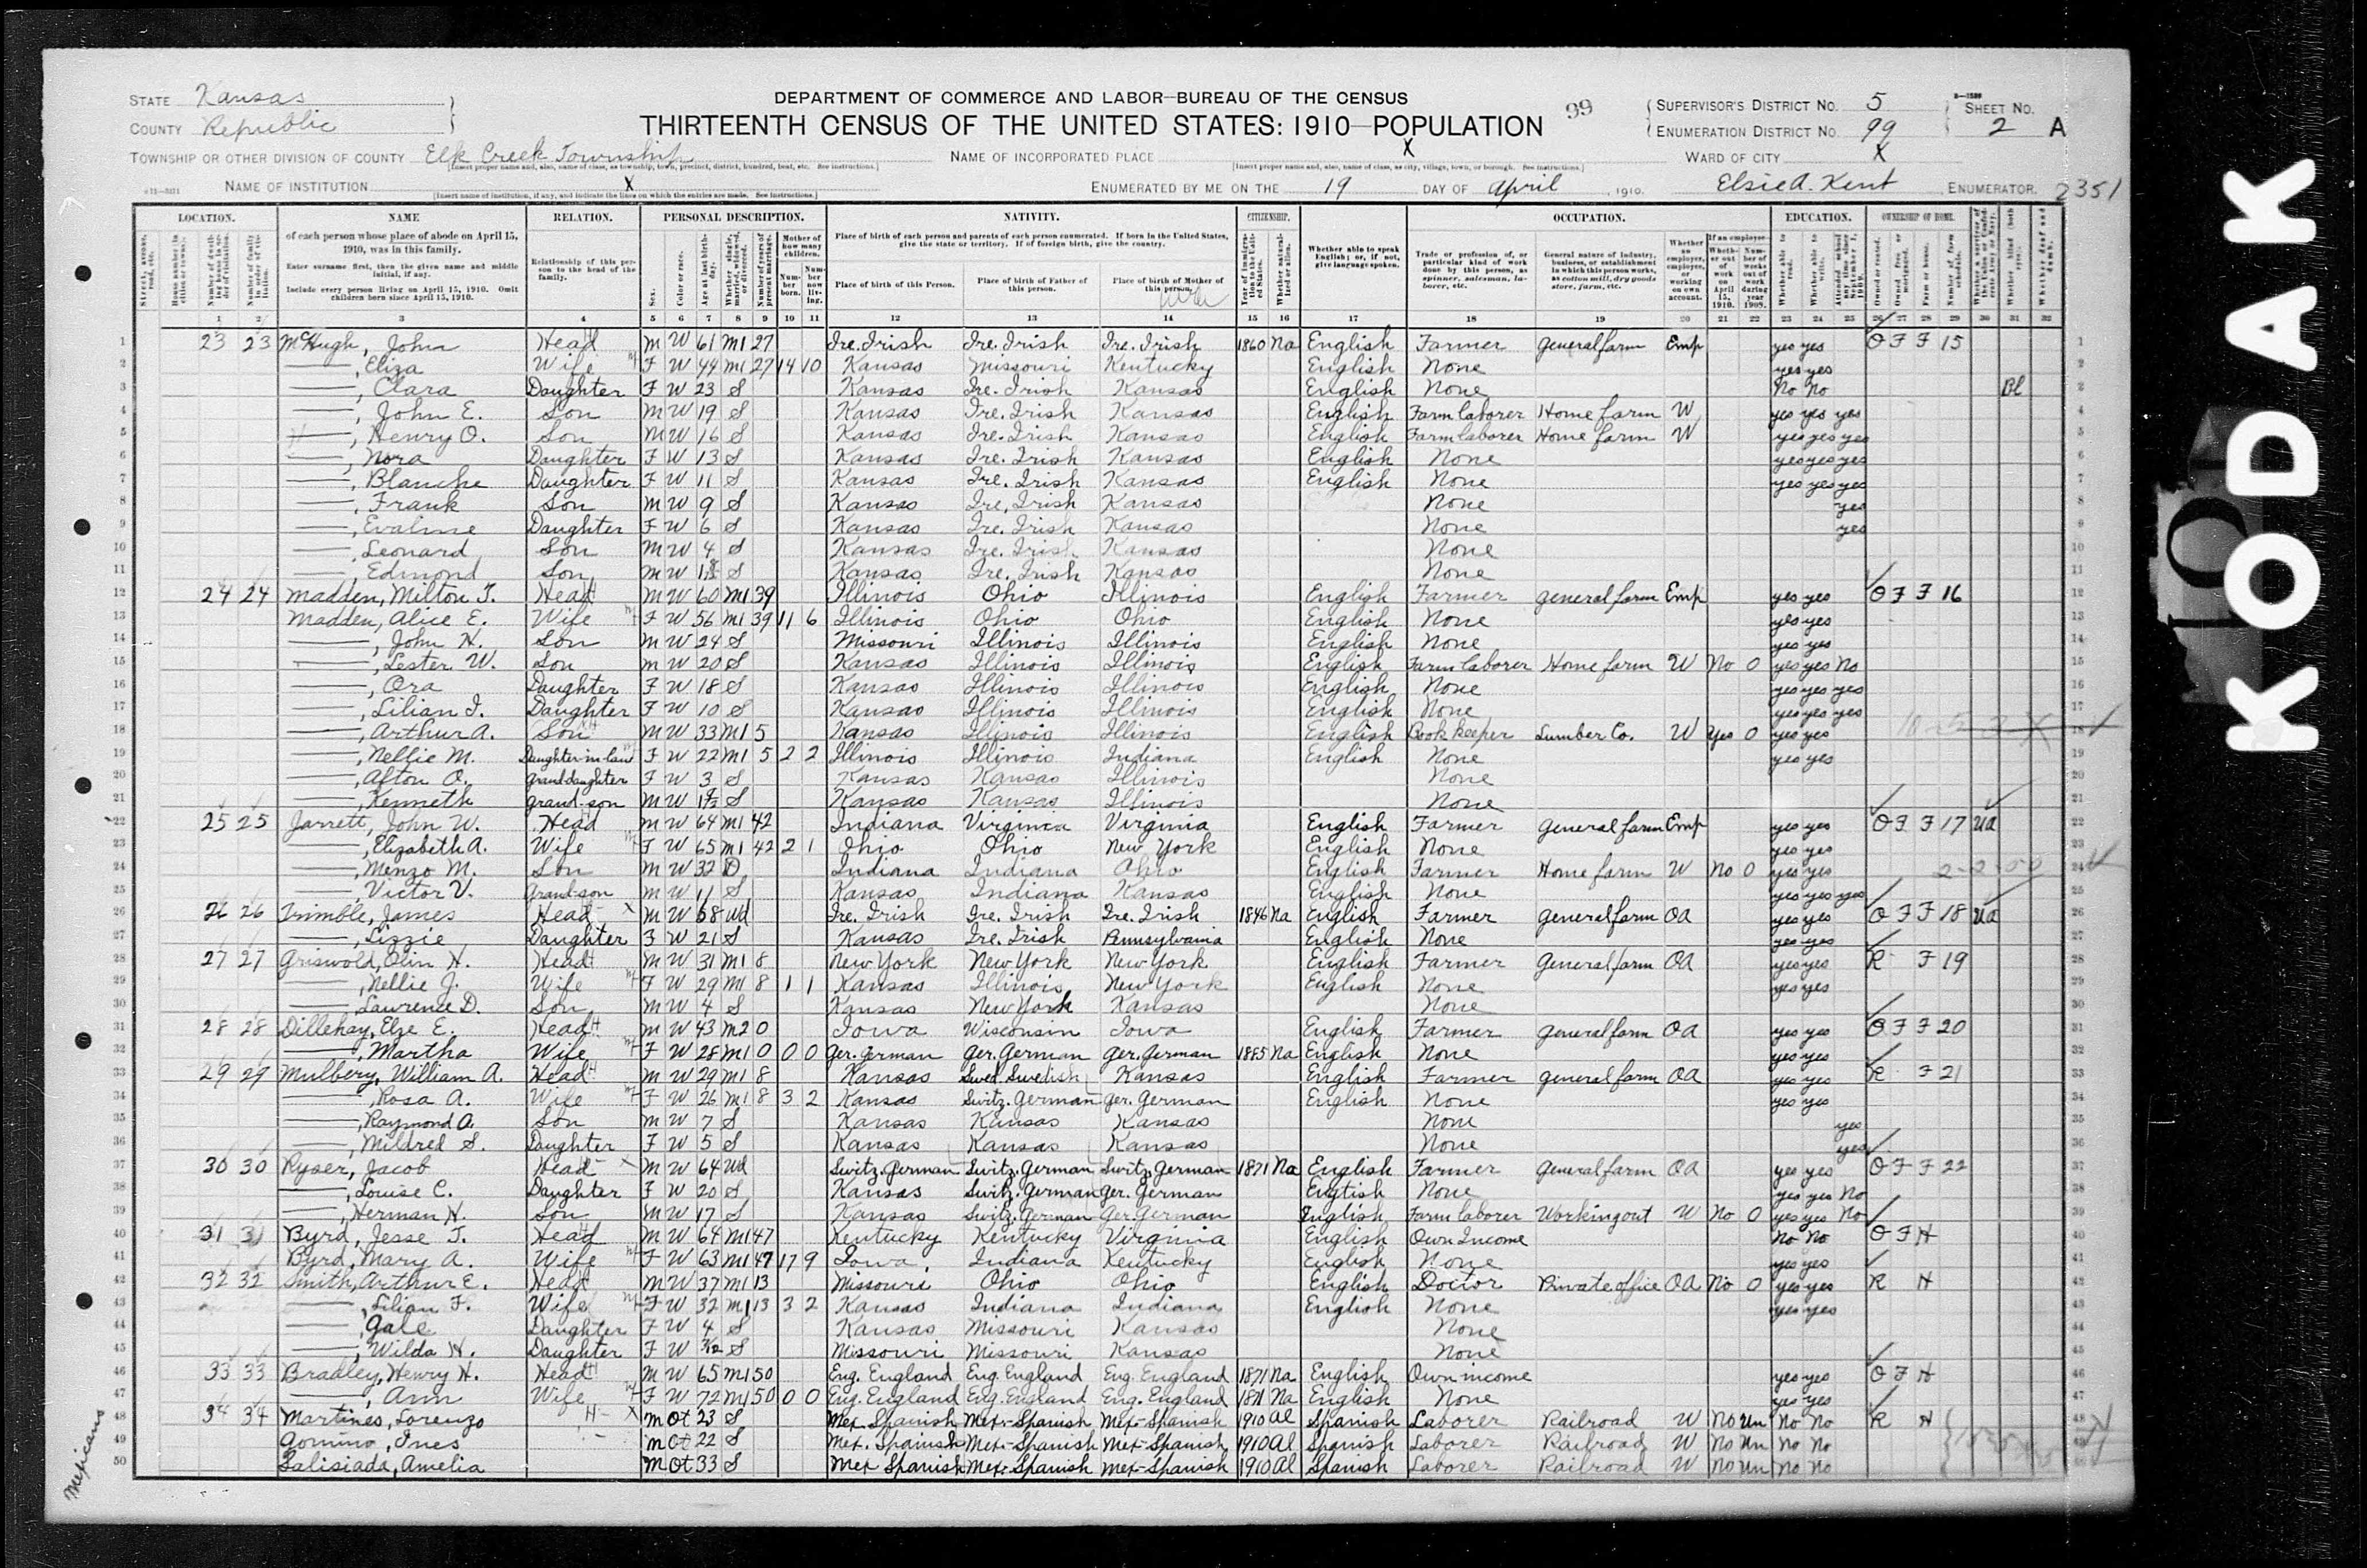 STATE Kansas
COUNTY Republic
DEPARTMENT OF COMMERCE AND LABOR—BUREAU OF THE CENSUS
THIRTEENTH CENSUS OF THE UNITED STATES: 1910—POPULATION
99
SUPERVISOR'S DISTRICT NO. 5
ENUMERATION DISTRICT NO. 99
SHEET NO. 2 A
TOWNSHIP OR OTHER DIVISION OF COUNTY Elk Creek Township
NAME OF INCORPORATED PLACE X
WARD OF CITY X
NAME OF INSTITUTION X
ENUMERATED BY ME ON THE 19 DAY OF April, 1910. Elsie A. Kent ENUMERATOR. 2351
LOCATION. NAME RELATION. PERSONAL DESCRIPTION. NATIVITY. CITIZENSHIP. OCCUPATION. EDUCATION. OWNERSHIP OF HOME.
of each person whose place of abode on April 15, 1910, was in this family.
Enter surname first, then the given name and middle initial, if any.
Include every person living on April 15, 1910. Omit children born since April 15, 1910.
Relationship of this person to the head of the family.
Place of birth of each person and parents of each person enumerated. If born in the United States, give the state or territory. If of foreign birth, give the country.
Place of birth of this Person. Place of birth of Father of this person. Place of birth of Mother of this person.
Whether able to speak English; or, if not, give language spoken.
1 2 3 4 5 6 7 8 9 10 11 12 13 14 15 16 17 18 19 20 21 22 23 24 25 26 27 28 29 30 31 32
1 23 23 McHugh, John Head M W 61 M1 27 Ire. Irish Ire. Irish Ire. Irish 1860 Na English Farmer General farm Emp yes yes O F F 15 1
2 —, Eliza Wife F W 44 M1 27 14 10 Kansas Missouri Kentucky English None yes yes 2
3 —, Clara Daughter F W 23 S Kansas Ire. Irish Kansas English None No No Bl
4 —, John E. Son M W 19 S Kansas Ire. Irish Kansas English Farm laborer Home farm W yes yes yes 4
5 —, Henry O. Son M W 16 S Kansas Ire. Irish Kansas English Farm laborer Home farm W yes yes yes 5
6 —, Nora Daughter F W 13 S Kansas Ire. Irish Kansas English None yes yes yes 6
7 —, Blanche Daughter F W 11 S Kansas Ire. Irish Kansas English None yes yes yes 7
8 —, Frank Son M W 9 S Kansas Ire. Irish Kansas None yes 8
9 —, Evaline Daughter F W 6 S Kansas Ire. Irish Kansas None yes 9
10 —, Leonard Son M W 4 S Kansas Ire. Irish Kansas None 10
11 —, Edmond Son M W S Kansas Ire. Irish Kansas None 11
12 24 24 Madden, Milton T. Head M W 60 M1 39 Illinois Ohio Illinois English Farmer general farm Emp yes yes O F F 16 12
13 Madden, Alice E. Wife F W 56 M1 39 11 6 Illinois Ohio Ohio English None yes yes 13
14 —, John H. Son M W 24 S Missouri Illinois Illinois English None yes yes 14
15 —, Lester W. Son M W 20 S Kansas Illinois Illinois English Farm laborer Home farm W No 0 yes yes No 15
16 —, Ora Daughter F W 18 S Kansas Illinois Illinois English None yes yes yes 16
17 —, Lilian I. Daughter F W 10 S Kansas Illinois Illinois English None yes yes yes 17
18 —, Arthur A. Son M W 33 M1 5 Kansas Illinois Illinois English Book keeper Lumber Co. W yes 0 yes yes 18
19 —, Nellie M. Daughter-in-law F W 22 M1 5 2 2 Illinois Illinois Indiana English None yes yes 19
20 —, Afton O. Granddaughter F W 3 S Kansas Kansas Illinois None 20
21 —, Kenneth grand-son M W S Kansas Kansas Illinois None 21
22 25 25 Jarrett, John W. Head M W 64 M1 42 Indiana Virginia Virginia English Farmer General farm Emp yes yes O F F 17 UA 22
23 —, Elizabeth A. Wife F W 65 M1 42 2 1 Ohio Ohio New York English None yes yes 23
24 —, Menzo M. Son M W 32 D Indiana Indiana Ohio English Farmer Home farm W No 0 yes yes 24
25 —, Victor V. Grand-son M W 11 S Kansas Indiana Kansas English None yes yes yes 25
26 26 26 Trimble, James Head M W 68 Wd Ire. Irish Ire. Irish Ire. Irish 1846 Na English Farmer general farm OA yes yes O F F 18 UA 26
27 —, Lizzie Daughter F W 21 S Kansas Ire. Irish Pennsylvania English None yes yes 27
28 27 27 Griswold, Olin H. Head M W 31 M1 8 New York New York New York English Farmer General farm OA yes yes R F 19 28
29 —, Nellie J. Wife F W 29 M1 8 1 1 Kansas Illinois New York English None yes yes 29
30 —, Lawrence D. Son M W 4 S Kansas New York Kansas None 30
31 28 28 Dillehay, Elze E. Head M W 43 M2 0 Iowa Wisconsin Iowa English Farmer General farm OA yes yes O F F 20 31
32 —, Martha Wife F W 28 M1 0 0 0 Ger. German Ger. German Ger. German 1885 Na English None yes yes 32
33 29 29 Mulbery, William A. Head M W 29 M1 8 Kansas Swed. Swedish Kansas English Farmer general farm OA yes yes R F 21 33
34 —, Rosa A. Wife F W 26 M1 8 3 2 Kansas Switz. German Ger. German English None yes yes 34
35 —, Raymond A. Son M W 7 S Kansas Kansas Kansas None yes 35
36 —, Mildred S. Daughter F W 5 S Kansas Kansas Kansas None yes 36
37 30 30 Ryser, Jacob Head M W 64 Wd Switz. German Switz. German Switz. German 1871 Na English Farmer General farm OA yes yes O F F 22 37
38 —, Louise C. Daughter F W 20 S Kansas Switz. German Ger. German English None yes yes No 38
39 —, Herman H. Son M W 17 S Kansas Switz. German Ger. German English Farm laborer Working out W No 0 yes yes No 39
40 31 31 Byrd, Jesse T. Head M W 64 M1 47 Kentucky Kentucky Virginia English Own Income No No O F H 40
41 Byrd, Mary A. Wife F W 63 M1 47 17 9 Iowa Indiana Kentucky English None yes yes 41
42 32 32 Smith, Arthur E. Head M W 37 M1 13 Missouri Ohio Ohio English Doctor Private office OA No 0 yes yes R H 42
43 —, Lilian F. Wife F W 32 M1 13 3 2 Kansas Indiana Indiana English None yes yes 43
44 —, Gale Daughter F W 4 S Kansas Missouri Kansas None 44
45 —, Wilda H. Daughter F W S Missouri Missouri Kansas None 45
46 33 33 Bradley, Henry H. Head M W 65 M1 50 Eng. England Eng. England Eng. England 1871 Na English Own income yes yes O F H 46
47 —, Ann Wife F W 72 M1 50 0 0 Eng. England Eng. England Eng. England 1871 Na English None yes yes 47
48 34 34 Martines, Lorenzo M Ot 23 S Mex. Spanish Mex-Spanish Mex-Spanish 1910 Al Spanish Laborer Railroad W No Un No No R H 48
49 Gomino, Ines M Ot 22 S Mex. Spanish Mex-Spanish Mex-Spanish 1910 Al Spanish Laborer Railroad W No Un No No
50 Salisiada, Amelia M Ot 33 S Mex Spanish Mex-Spanish Mex-Spanish 1910 Al Spanish Laborer Railroad W No Un No No
Mexicans
KODAK